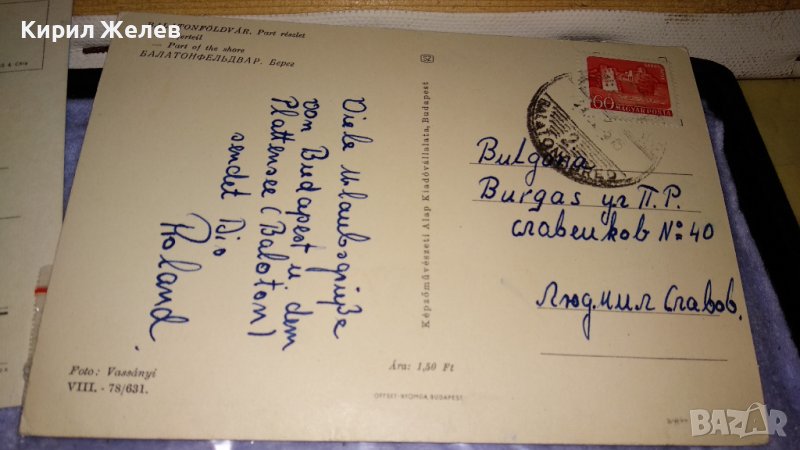 Кирил Желев
BALATONFÖLDVÁR. Part részlet
— Part of the shore
БАЛАТОНФЕЛЬДВАР. Берег
Viele Urlaubsgrüße
von Budapest u. dem
Plattensee (Balaton)
sendet Dir
Roland.
Foto: Vassányi
VIII. - 78/631.
Képzőművészeti Alap Kiadóvállalata, Budapest
Ára: 1,50 Ft
OFFSET-NYOMDA, BUDAPEST
60
MAGYAR POSTA
Bulgaria
Burgas ул П.Р.
славейков №: 40
Людмил Славов.
BAZAR
bazar.bg